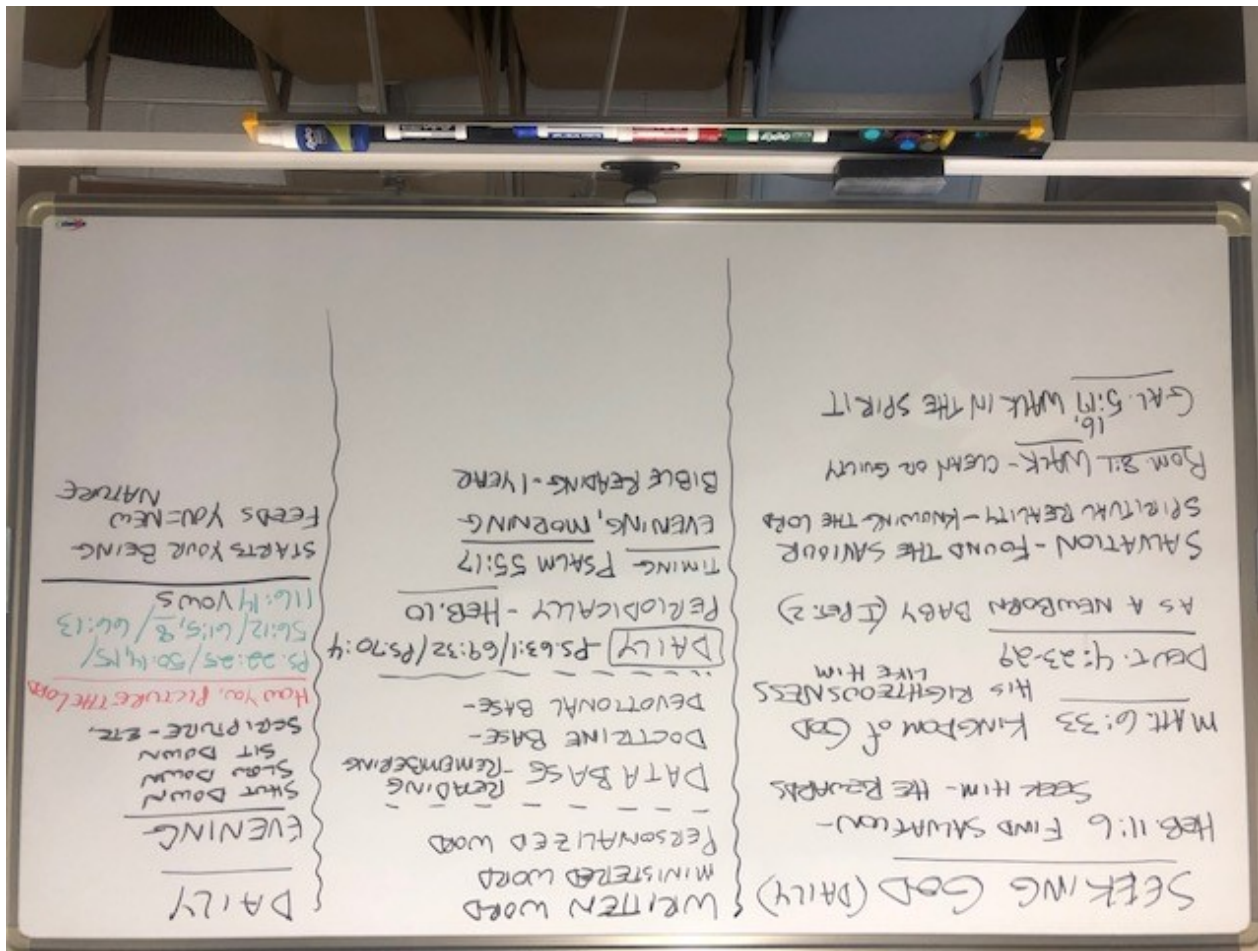 SEEKING GOD (DAILY)
HEB. 11:6 FIND SALVATION-
SEEK HIM - HE REWARDS
MATT. 6:33 KINGDOM of GOD
HIS RIGHTEOUSNESS
LIKE HIM
DEUT. 4:23-29
AS A NEWBORN BABY (I PET. 2)
SALVATION - FOUND THE SAVIOUR
SPIRITUAL REALITY - KNOWING THE LORD
ROM. 8:1 WALK - CLEAN OR GUILTY
16,
GAL. 5:17 WALK IN THE SPIRIT
WRITTEN WORD
MINISTERED WORD
PERSONALIZED WORD
DATA BASE - READING
REMEMBERING
DOCTRINE BASE-
DEVOTIONAL BASE-
DAILY - PS. 63:1/69:32/PS. 70:4
PERIODICALLY - HEB. 10
TIMING - PSALM 55:17
EVENING, MORNING
BIBLE READING - 1 YEAR
DAILY
EVENING
SHUT DOWN
SLOW DOWN
SIT DOWN
SCRIPTURE - ETC.
HOW YOU PICTURE THE LORD
PS. 22:25/50:14,15/
56:12/61:5,8/66:13
116:14 VOWS
STARTS YOUR BEING
FEEDS YOU=NEW
NATURE
EXPO